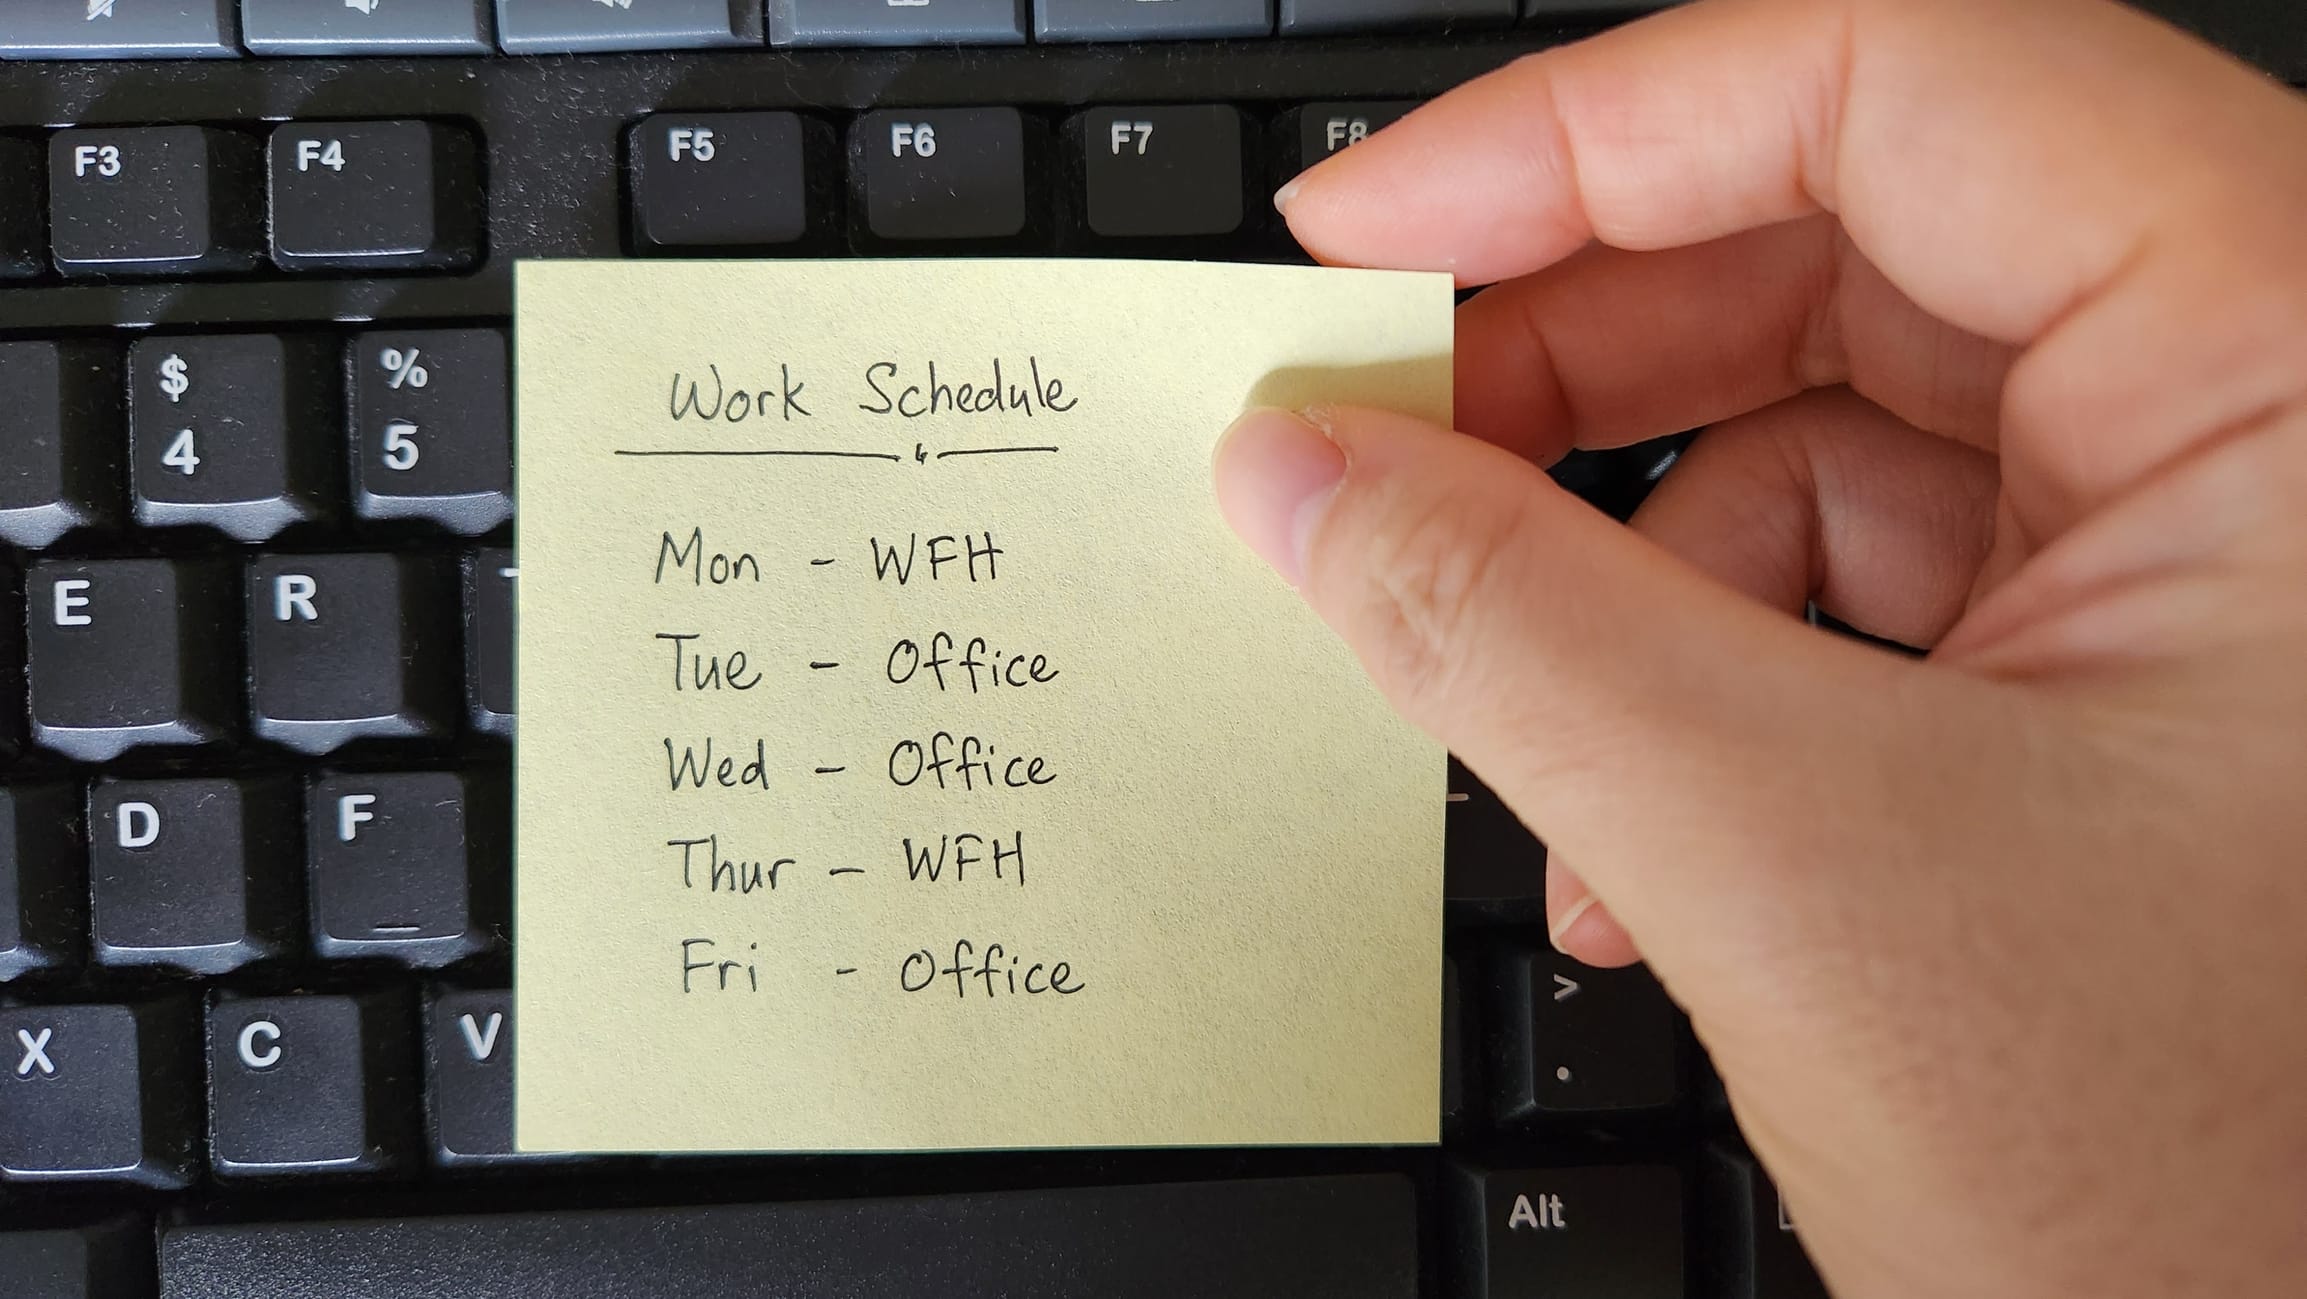 F3 F4 F5 F6 F7 F8
Work Schedule
$ %
4 5
Mon - WFH
E R
Tue - Office
Wed - Office
D F
Thur - WFH
Fri - Office
>
.
X C V
Alt